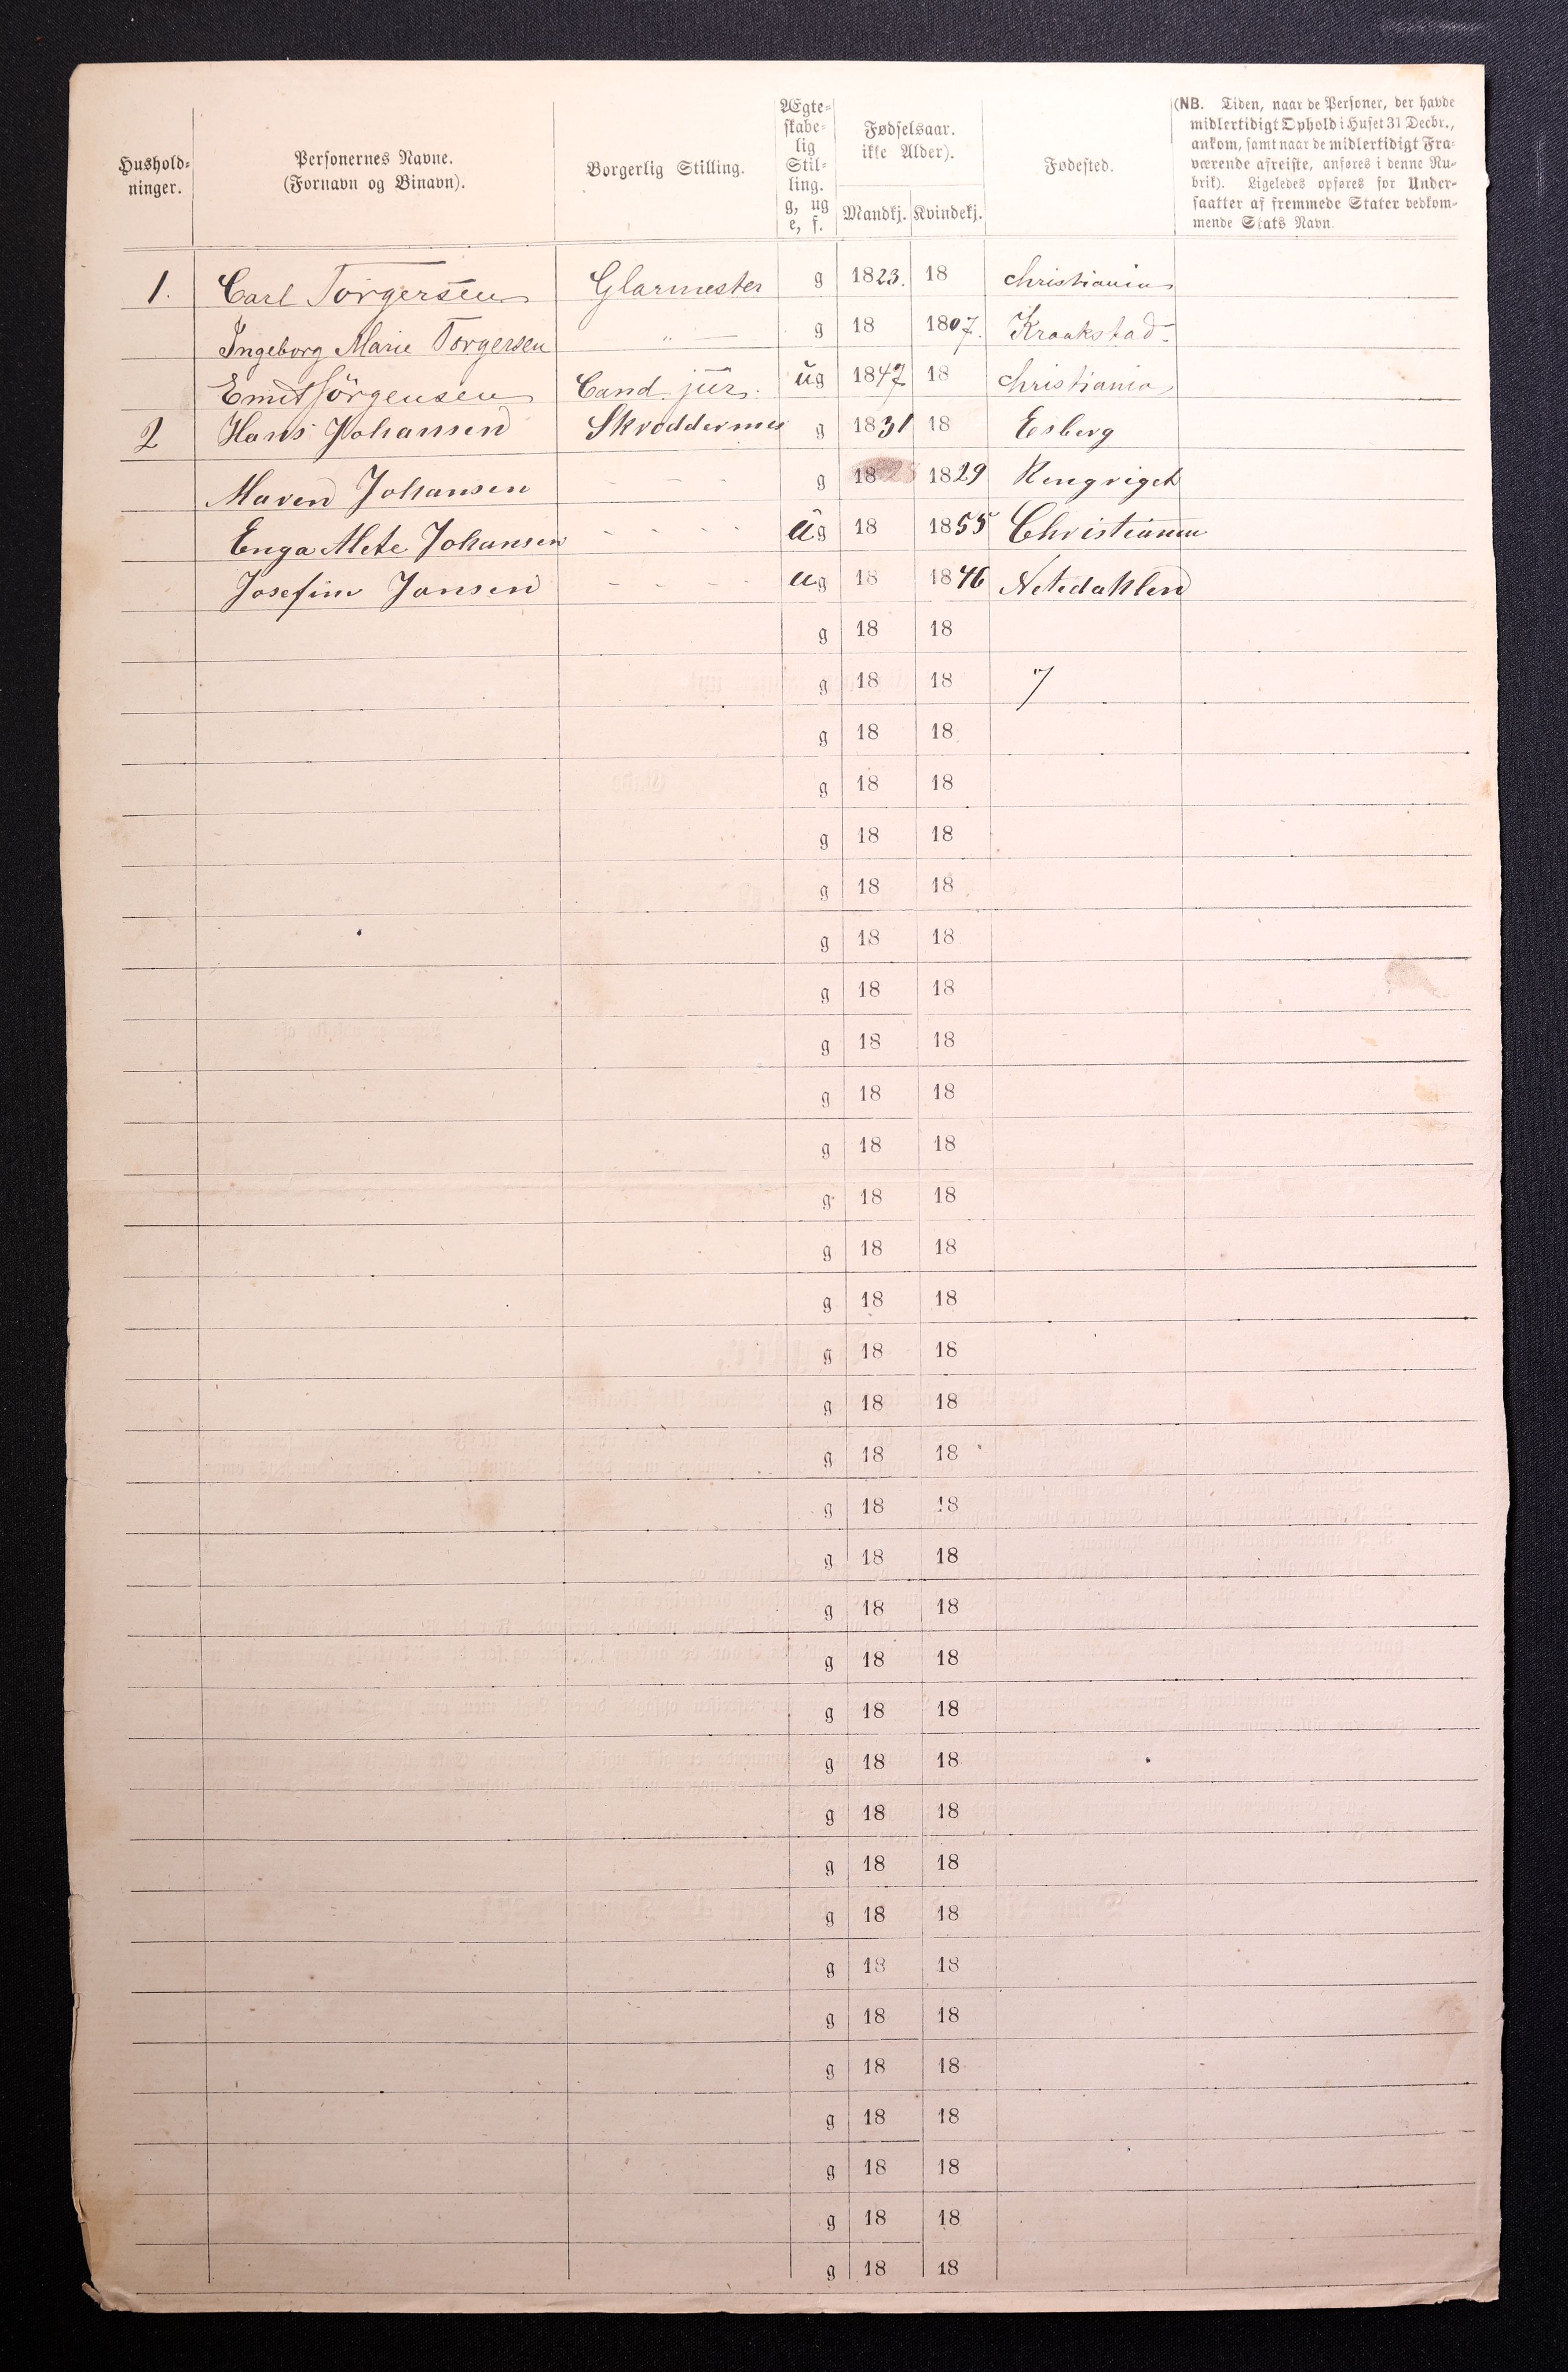 Hushold-
ninger.
Personernes Navne.
(Fornavn og Binavn).
Borgerlig Stilling.
Ægte-
skabe-
lig
Stil-
ling.
g, ug
e, f.
Fødselsaar.
ikke Alder).
Mandkj. Kvindekj.
Fødested.
(NB. Tiden, naar de Personer, der havde
midlertidigt Ophold i Huset 31 Decbr.,
ankom, samt naar de midlertidigt Fra-
værende afreiste, anføres i denne Ru-
brik). Ligeledes opføres for Under-
saatter af fremmede Stater vedkom-
mende Stats Navn.
1. Carl Torgersen Glarmester g 1823. 18 Christiania
Ingeborg Marie Torgersen " — g 18 1807. Kraakstad
Emil Jörgensen Cand. jur. ug 1847 18 Christiania
2 Hans Johansen Skroddermes g 1831 18 Esberg
Maren Johansen - - - g 18 1829 Rengriget
Enga Alete Johansen - - - - ug 18 1855 Christiania
Josefine Jansen - - - - ug 18 1846 Netedahlen
g 18 18
g 18 18 7
g 18 18
g 18 18
g 18 18
g 18 18
g 18 18
g 18 18
g 18 18
g 18 18
g 18 18
g 18 18
g 18 18
g 18 18
g 18 18
g 18 18
g 18 18
g 18 18
g 18 18
g 18 18
g 18 18
g 18 18
g 18 18
g 18 18
g 18 18
g 18 18
g 18 18
g 18 18
g 18 18
g 18 18
g 18 18
g 18 18
g 18 18